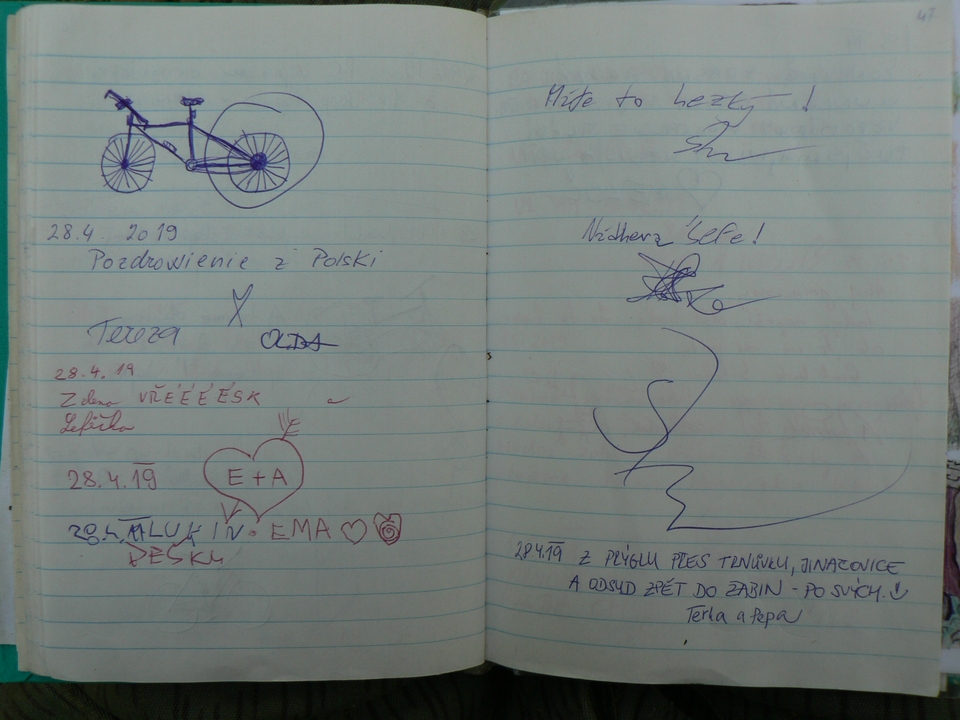 28.4. 2019
Pozdrowienie z Polski
Tereza
OLDA
28.4.19
Zdena VŘÉÉÉÉSK
28.4.19
E + A
EMA
47
Mějte to hezký!
Nádhera šéfe!
28.4.19 Z PRÝGLU PŘES TRNŮVKU, JINAČOVICE
A ODSUD ZPĚT DO ŽABIN - PO SVÝCH.
Terka a Pepa